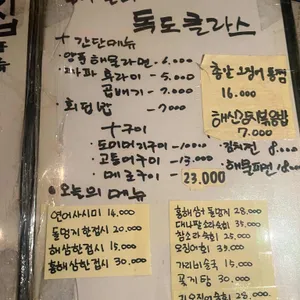 독도클라스
+ 간단메뉴
· 양푼 해물라면 - 6.000
후라이 - 5.000
곱배기 - 7.000
· 회덮밥 - 7000
총알 오징어 통찜
16.000
해산물볶음밥
7.000
+ 구이
· 도미머리구이 - 10000
· 고등어구이 - 13.000
· 메로구이 - 23.000
· 김치전 8.000
· 해물파전 18.000
· 오늘의 메뉴
연어사시미 16,000
돌멍게한접시 20.000
해삼한접시 15,000
홍해삼한접시 30,000
홍해삼+돌멍게 28.000
대나팔소라숙회 35,000
참소라숙회 25.000
오징어회 35,000
가리비술국 15,000
꽃게탕 30,000
28,000